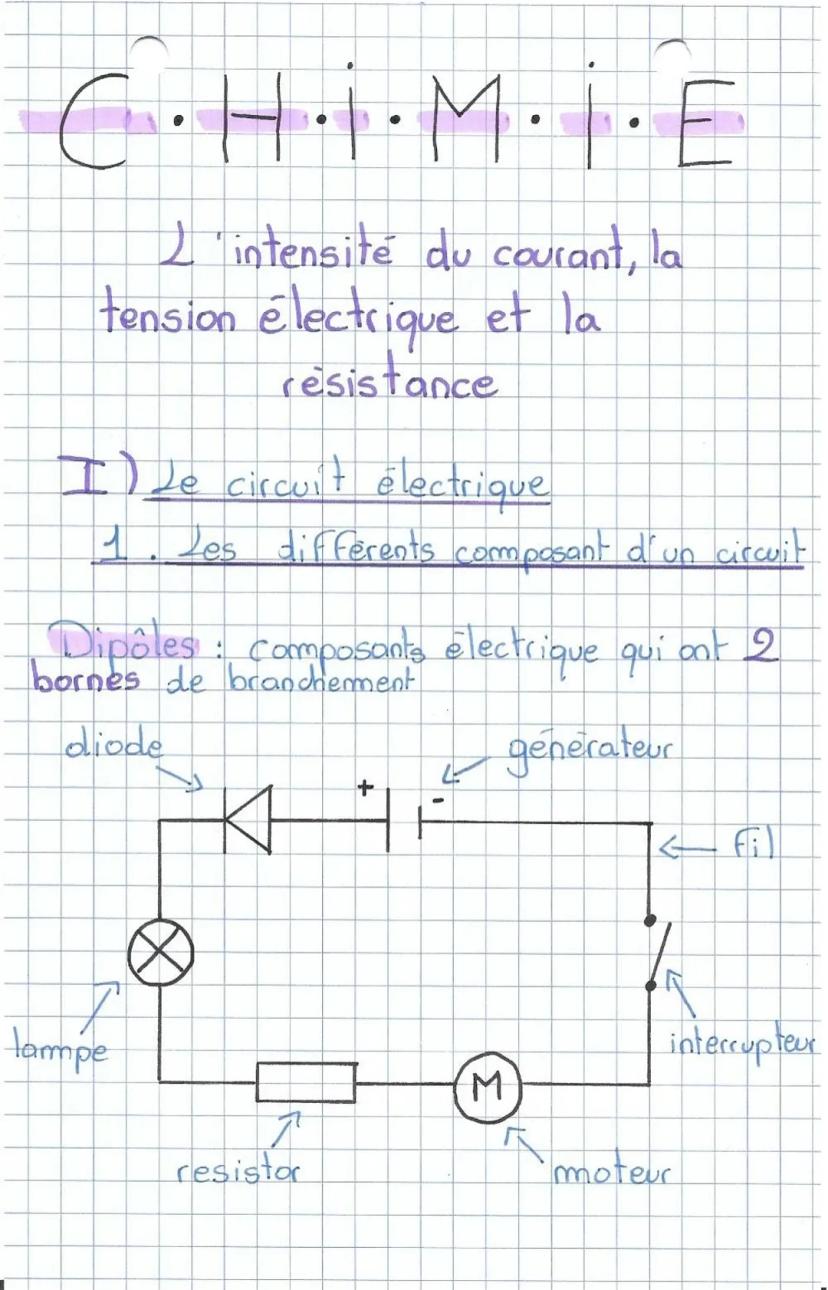 C·H·i·M·i·E
L'intensité du courant, la
tension électrique et la
résistance
I) Le circuit électrique
1. Les différents composant d'un circuit
Dipôles : composants électrique qui ont 2
bornes de branchement
diode
générateur
+
-
fil
lampe
interrupteur
M
resistor
moteur